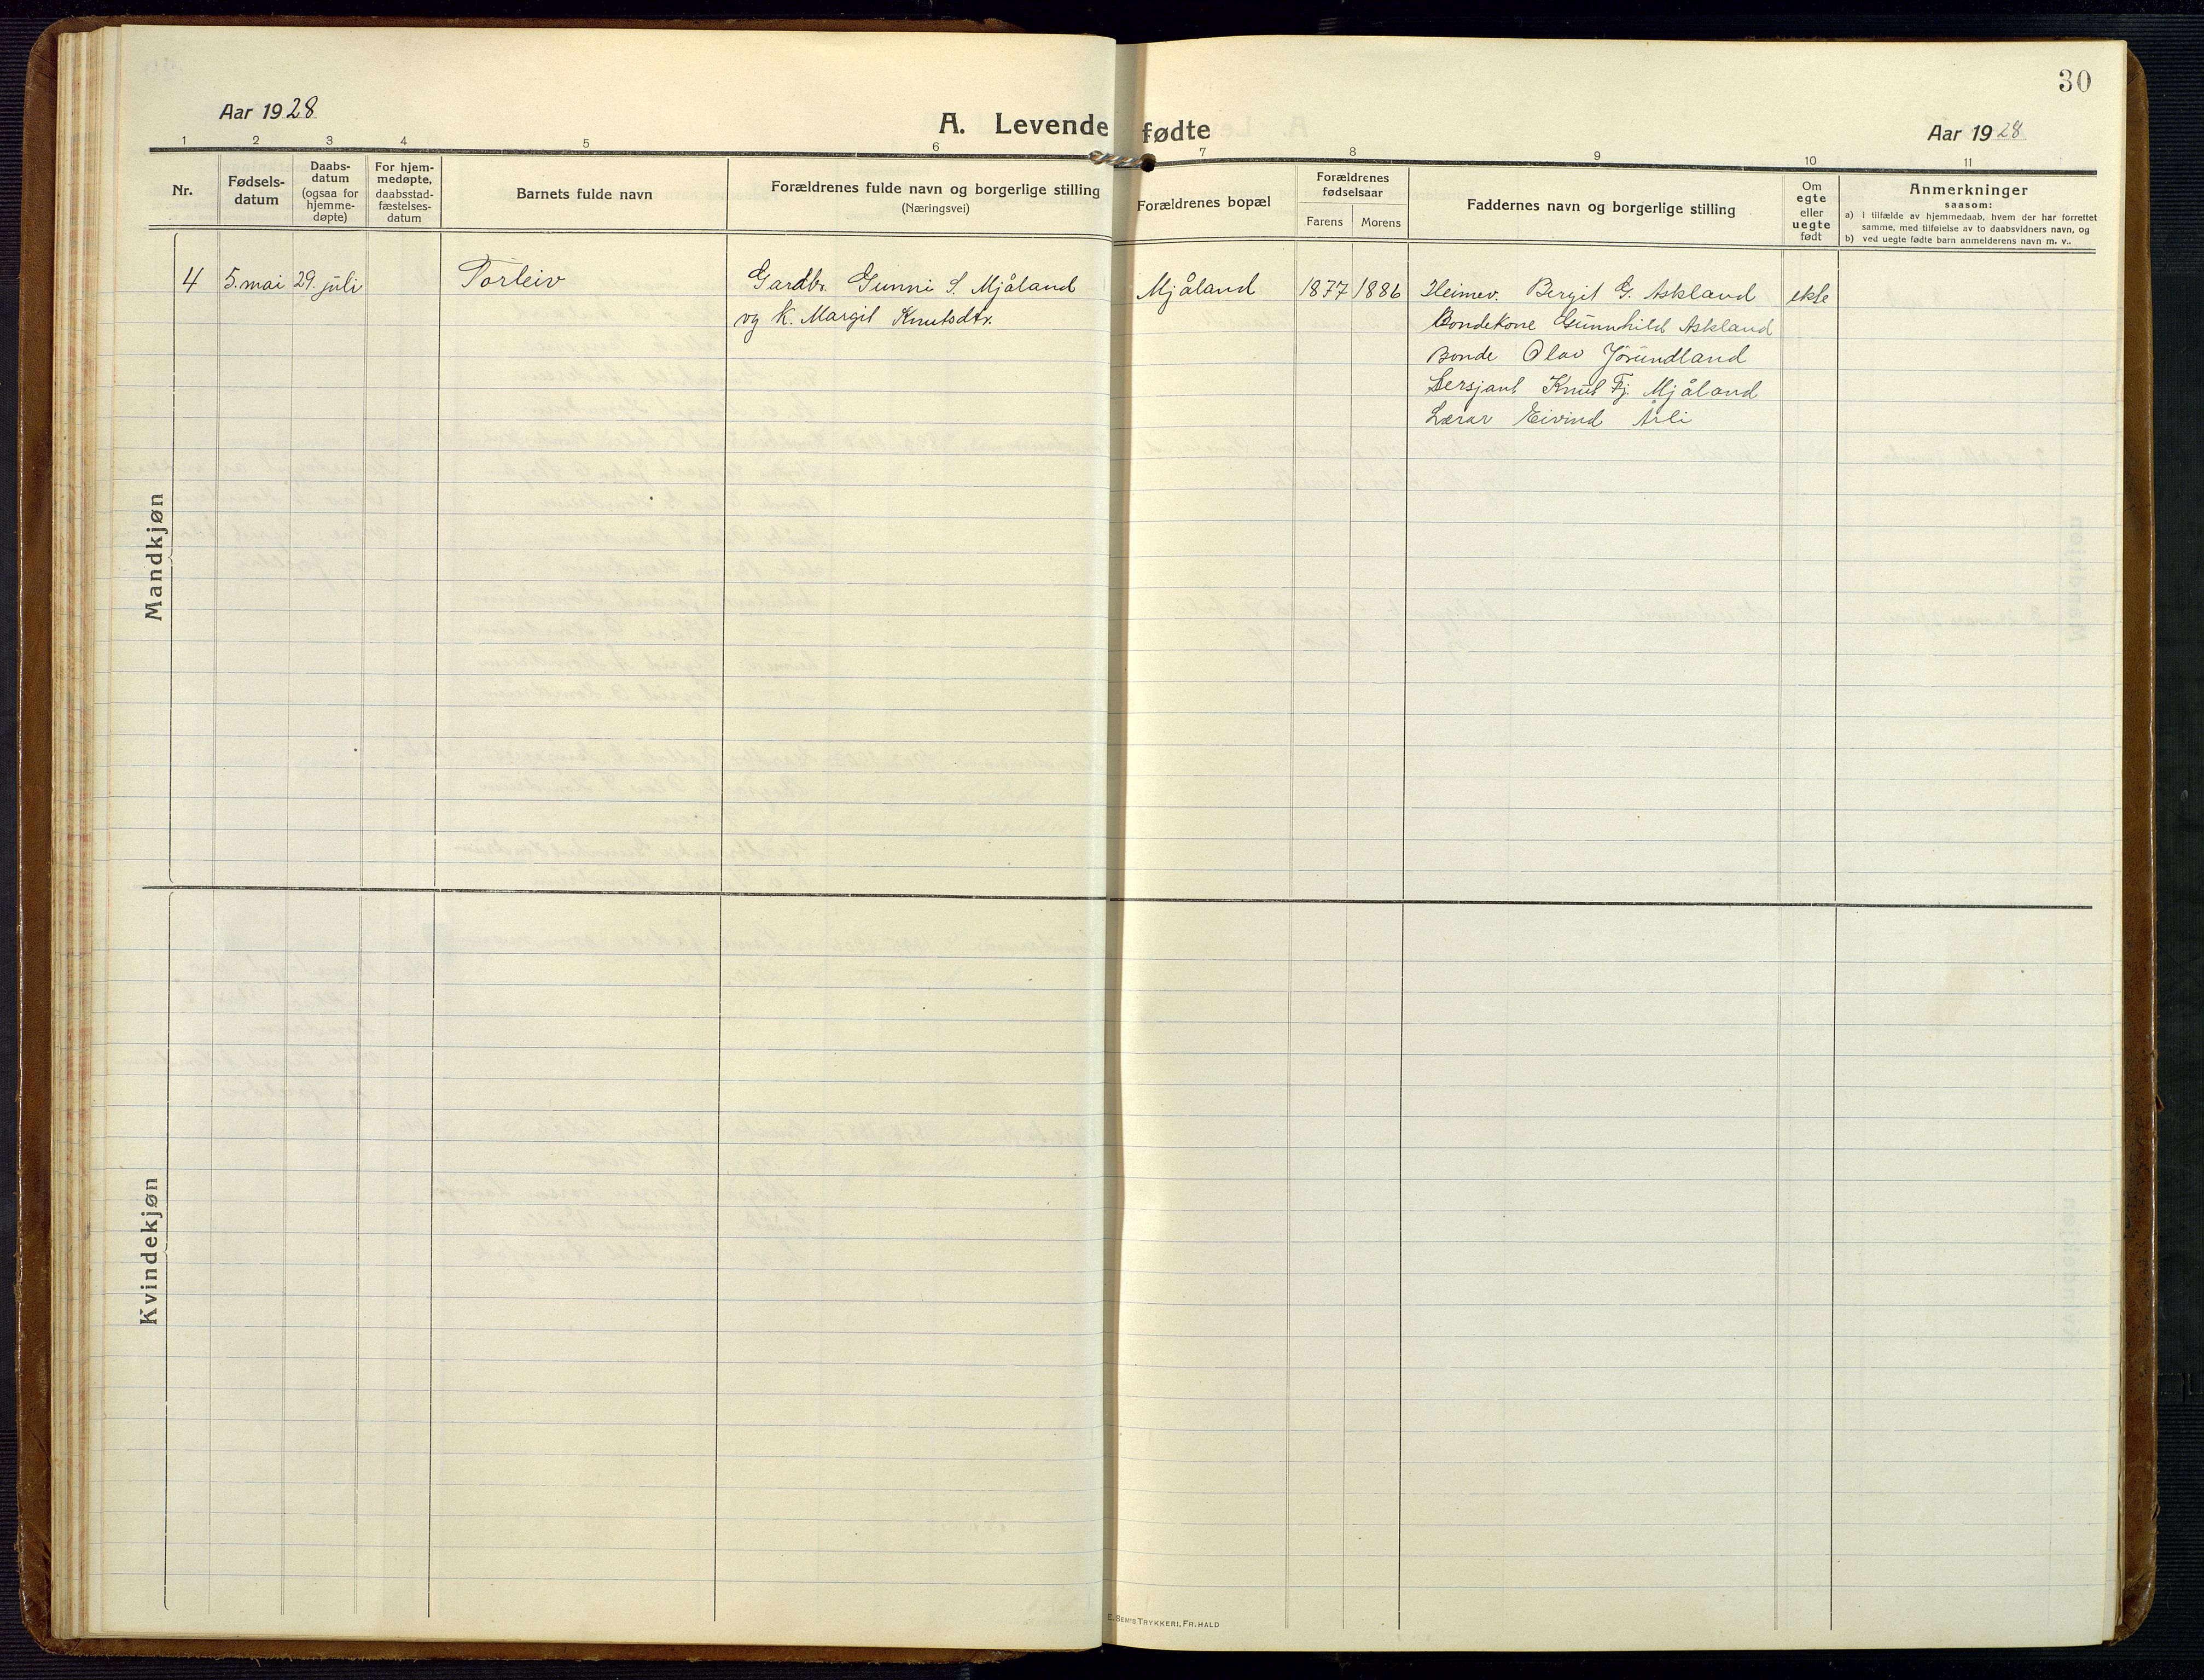 30
Aar 1928
A. Levende fødte
Aar 1928
1 2 3 4 5 6 7 8 9 10 11
Nr.
Fødsels-
datum
Daabs-
datum
(ogsaa for
hjemme-
døpte)
For hjem-
medøpte,
daabsstad-
fæstelses-
datum
Barnets fulde navn
Forældrenes fulde navn og borgerlige stilling
(Næringsvei)
Forældrenes bopæl
Forældrenes
fødselsaar
Farens Morens
Faddernes navn og borgerlige stilling
Om
egte
eller
uegte
født
Anmerkninger
saasom:
a) I tilfælde av hjemmedaab, hvem der har forrettet
samme, med tilføielse av to daabsvidners navn, og
b) ved uegte fødte barn anmelderens navn m. v..
Mandkjøn
4 5. mai 29. juli Torleiv Gardbr. Gunni S. Mjåland Mjåland 1877 1886 Heimev. Bergit G. Askland ekte
og K. Margit Knutsdtr. Bondekone Gunnhild Askland
Bonde Olav Jørundland
Sersjant Knut Fj. Mjåland
Lærar Eivind Årli
Kvindekjøn
E. SEMS TRYKKERI, FR. HALD